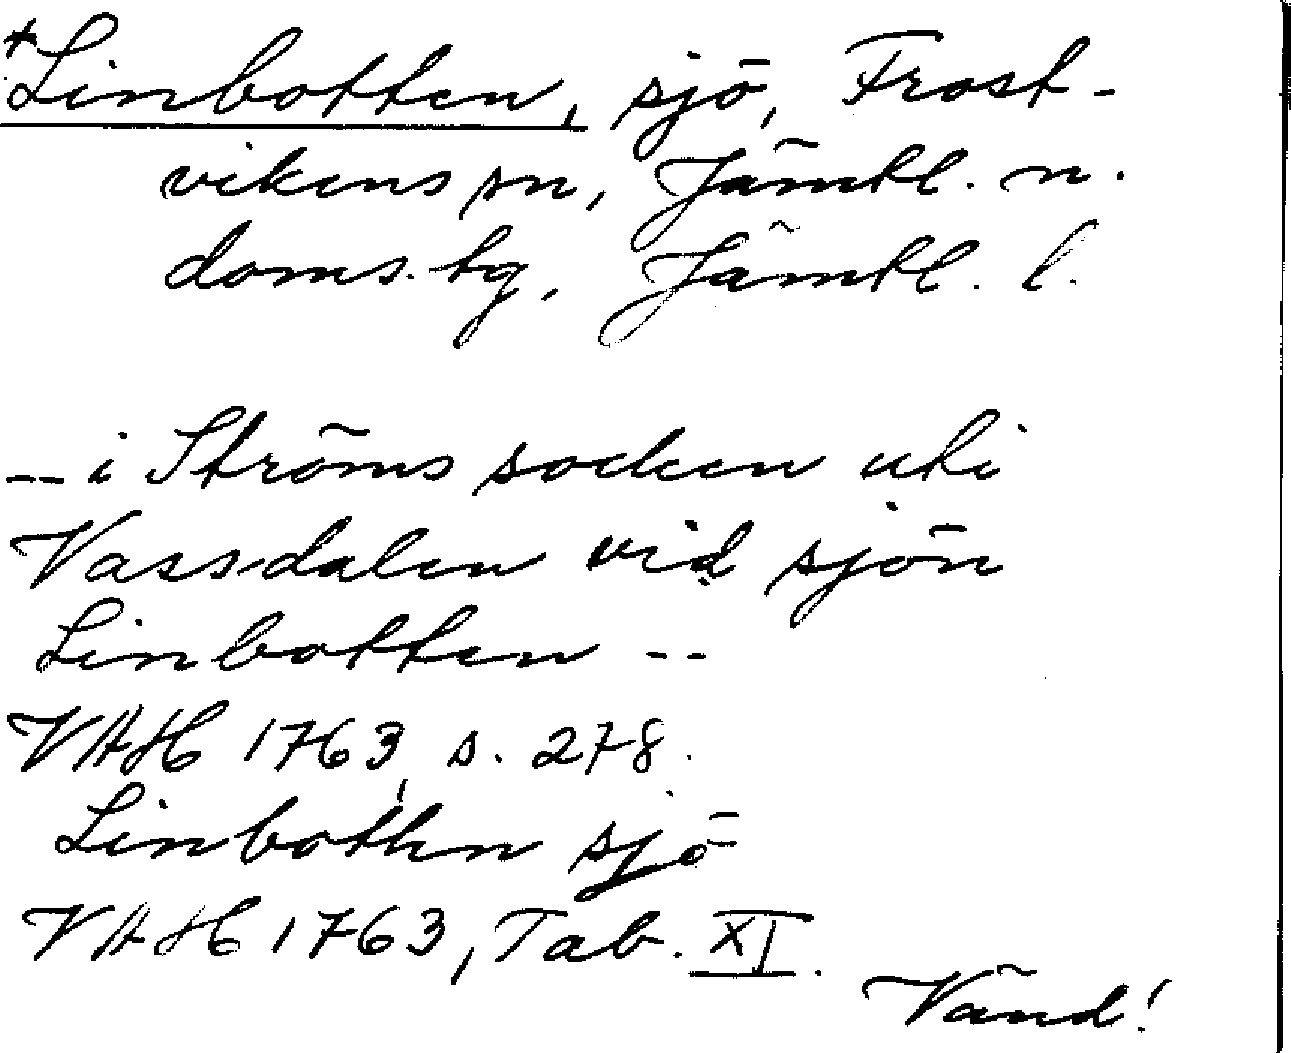 *Linbotten, sjö, Frost-
vikens sn, Jämtl. n.
doms. tg, Jämtl. l.
-- i Ströms socken uti
Vassdalen vid sjön
Linbotten --
VAH 1763, s. 278.
Linbottn sjö
VAH 1763, Tab. XI.
Vänd!